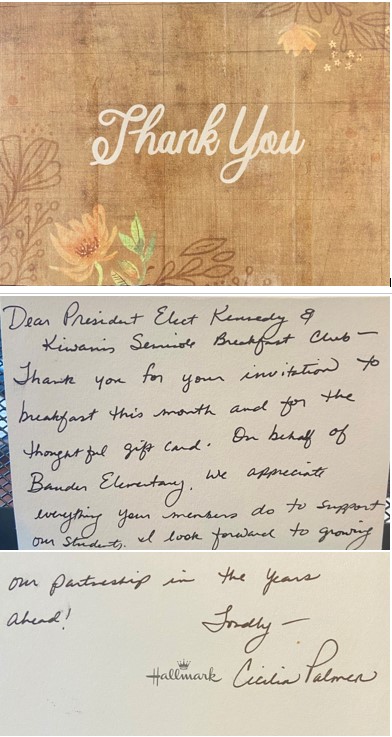 Thank You
Dear President Elect Kennedy &
Kiwanis Seminole Breakfast Club—
Thank you for your invitation to
breakfast this month and for the
thoughtful gift card. On behalf of
Bauder Elementary, we appreciate
everything your members do to support
our students. I look forward to growing
our partnership in the years
ahead!
Fondly—
Hallmark
Cicilia Palmer